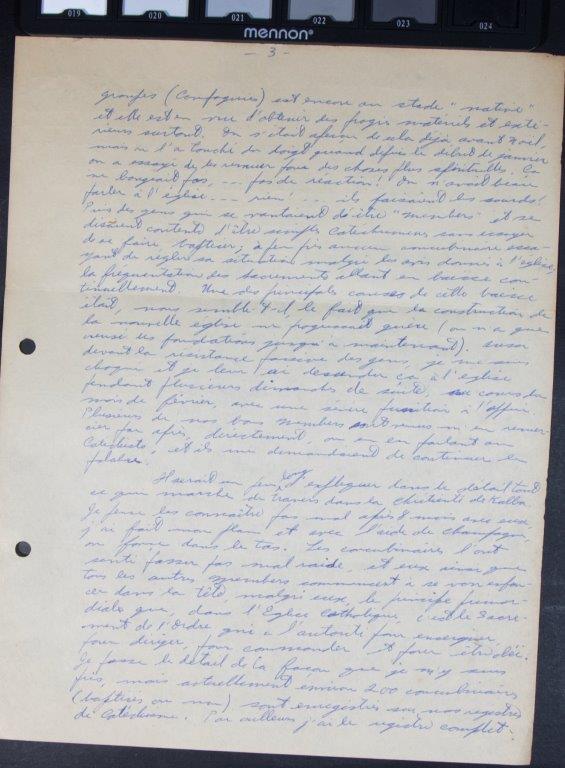 019 020 021 022 023 024
mennon®
- 3 -
groupes (Compagnies) est encore au stade "native"
et elle est en vue d'obtenir des progrès matériels et exté-
rieurs surtout. On s'était aperçu de cela déjà avant Noël,
mais on l'a touché du doigt quand depuis le début de janvier
on a essayé de les remuer pour des choses plus spirituelles. Ça
ne bougeait pas, ... pas de réaction! On n'avait beau
parler à l'église ... rien! ... ils faisaient les sourds!
Puis des gens qui se vantaient d'être "members" et se
disaient contents d'être simples catéchumènes sans essayer
de se faire baptiser; à peu près aucun concubinaire essa-
yant de régler sa situation malgré les avis donnés à l'église,
la fréquentation des sacrements allant en baisse con-
tinuellement. Une des principales causes de cette baisse
était, nous semble-t-il, le fait que la construction de
la nouvelle église ne progressait guère (on n'a que
creusé les fondations jusqu'à maintenant). Aussi
devant la résistance passive des gens, je me suis
choqué et je leur ai descendu ça à l'église
pendant plusieurs dimanches de suite, au cours du
mois de février, avec une sévère punition à l'appui.
Plusieurs de nos bons members sont venus m'en remer-
cier par après, directement, ou en en parlant au
catéchiste, et ils me demandaient de continuer la
palabre.
Il serait un peu long d'expliquer dans le détail tout
ce qui marche de travers dans la chrétienté de Kalba.
Je pense les connaître pas mal après 8 mois avec eux,
j'ai fait mon plan et avec l'aide de Champagne,
on fonce dans le tas. Les concubinaires l'ont
senti passer pas mal raide, et eux ainsi que
tous les autres members commencent à se voir enfon-
cer dans la tête, malgré eux, le principe primor-
diale que, dans l'Eglise catholique, c'est le sacre-
ment de l'Ordre qui a l'autorité pour enseigner,
pour diriger, pour commander et pour être obéi.
Je passe le détail de la façon que je m'y suis
pris, mais actuellement environ 200 concubinaires
(baptisés ou non) sont enregistrés sur nos registres
de catéchisme. Par ailleurs j'ai le registre complet